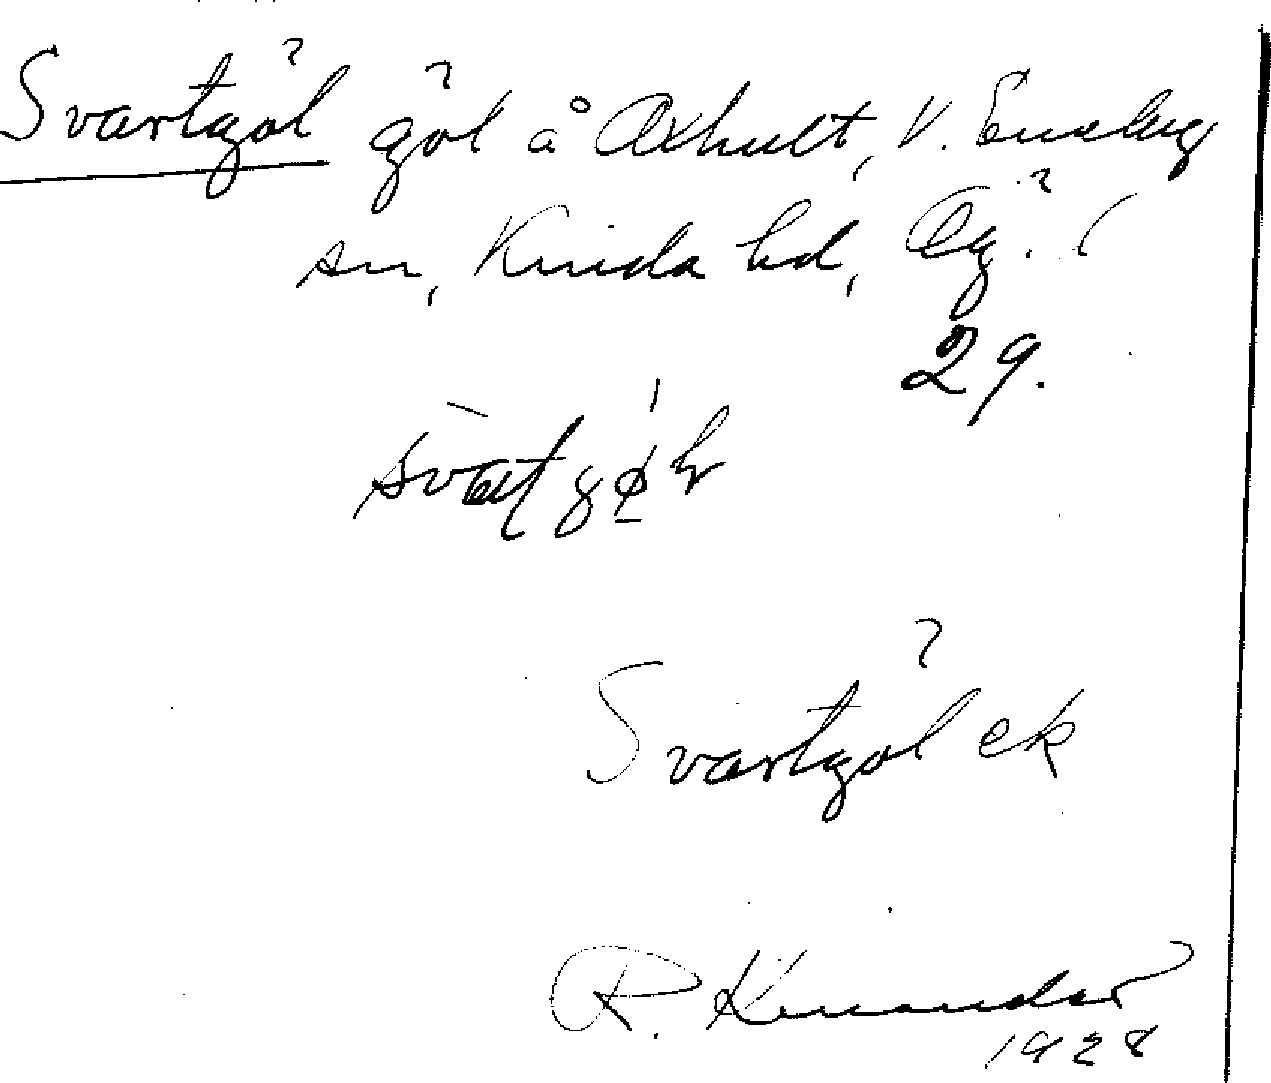 Svartgöl göl å Oxhult, V. Eneby
sn, Kinda hd, Ög. (
29.
Svartgöl ek
R. Kinander
1928